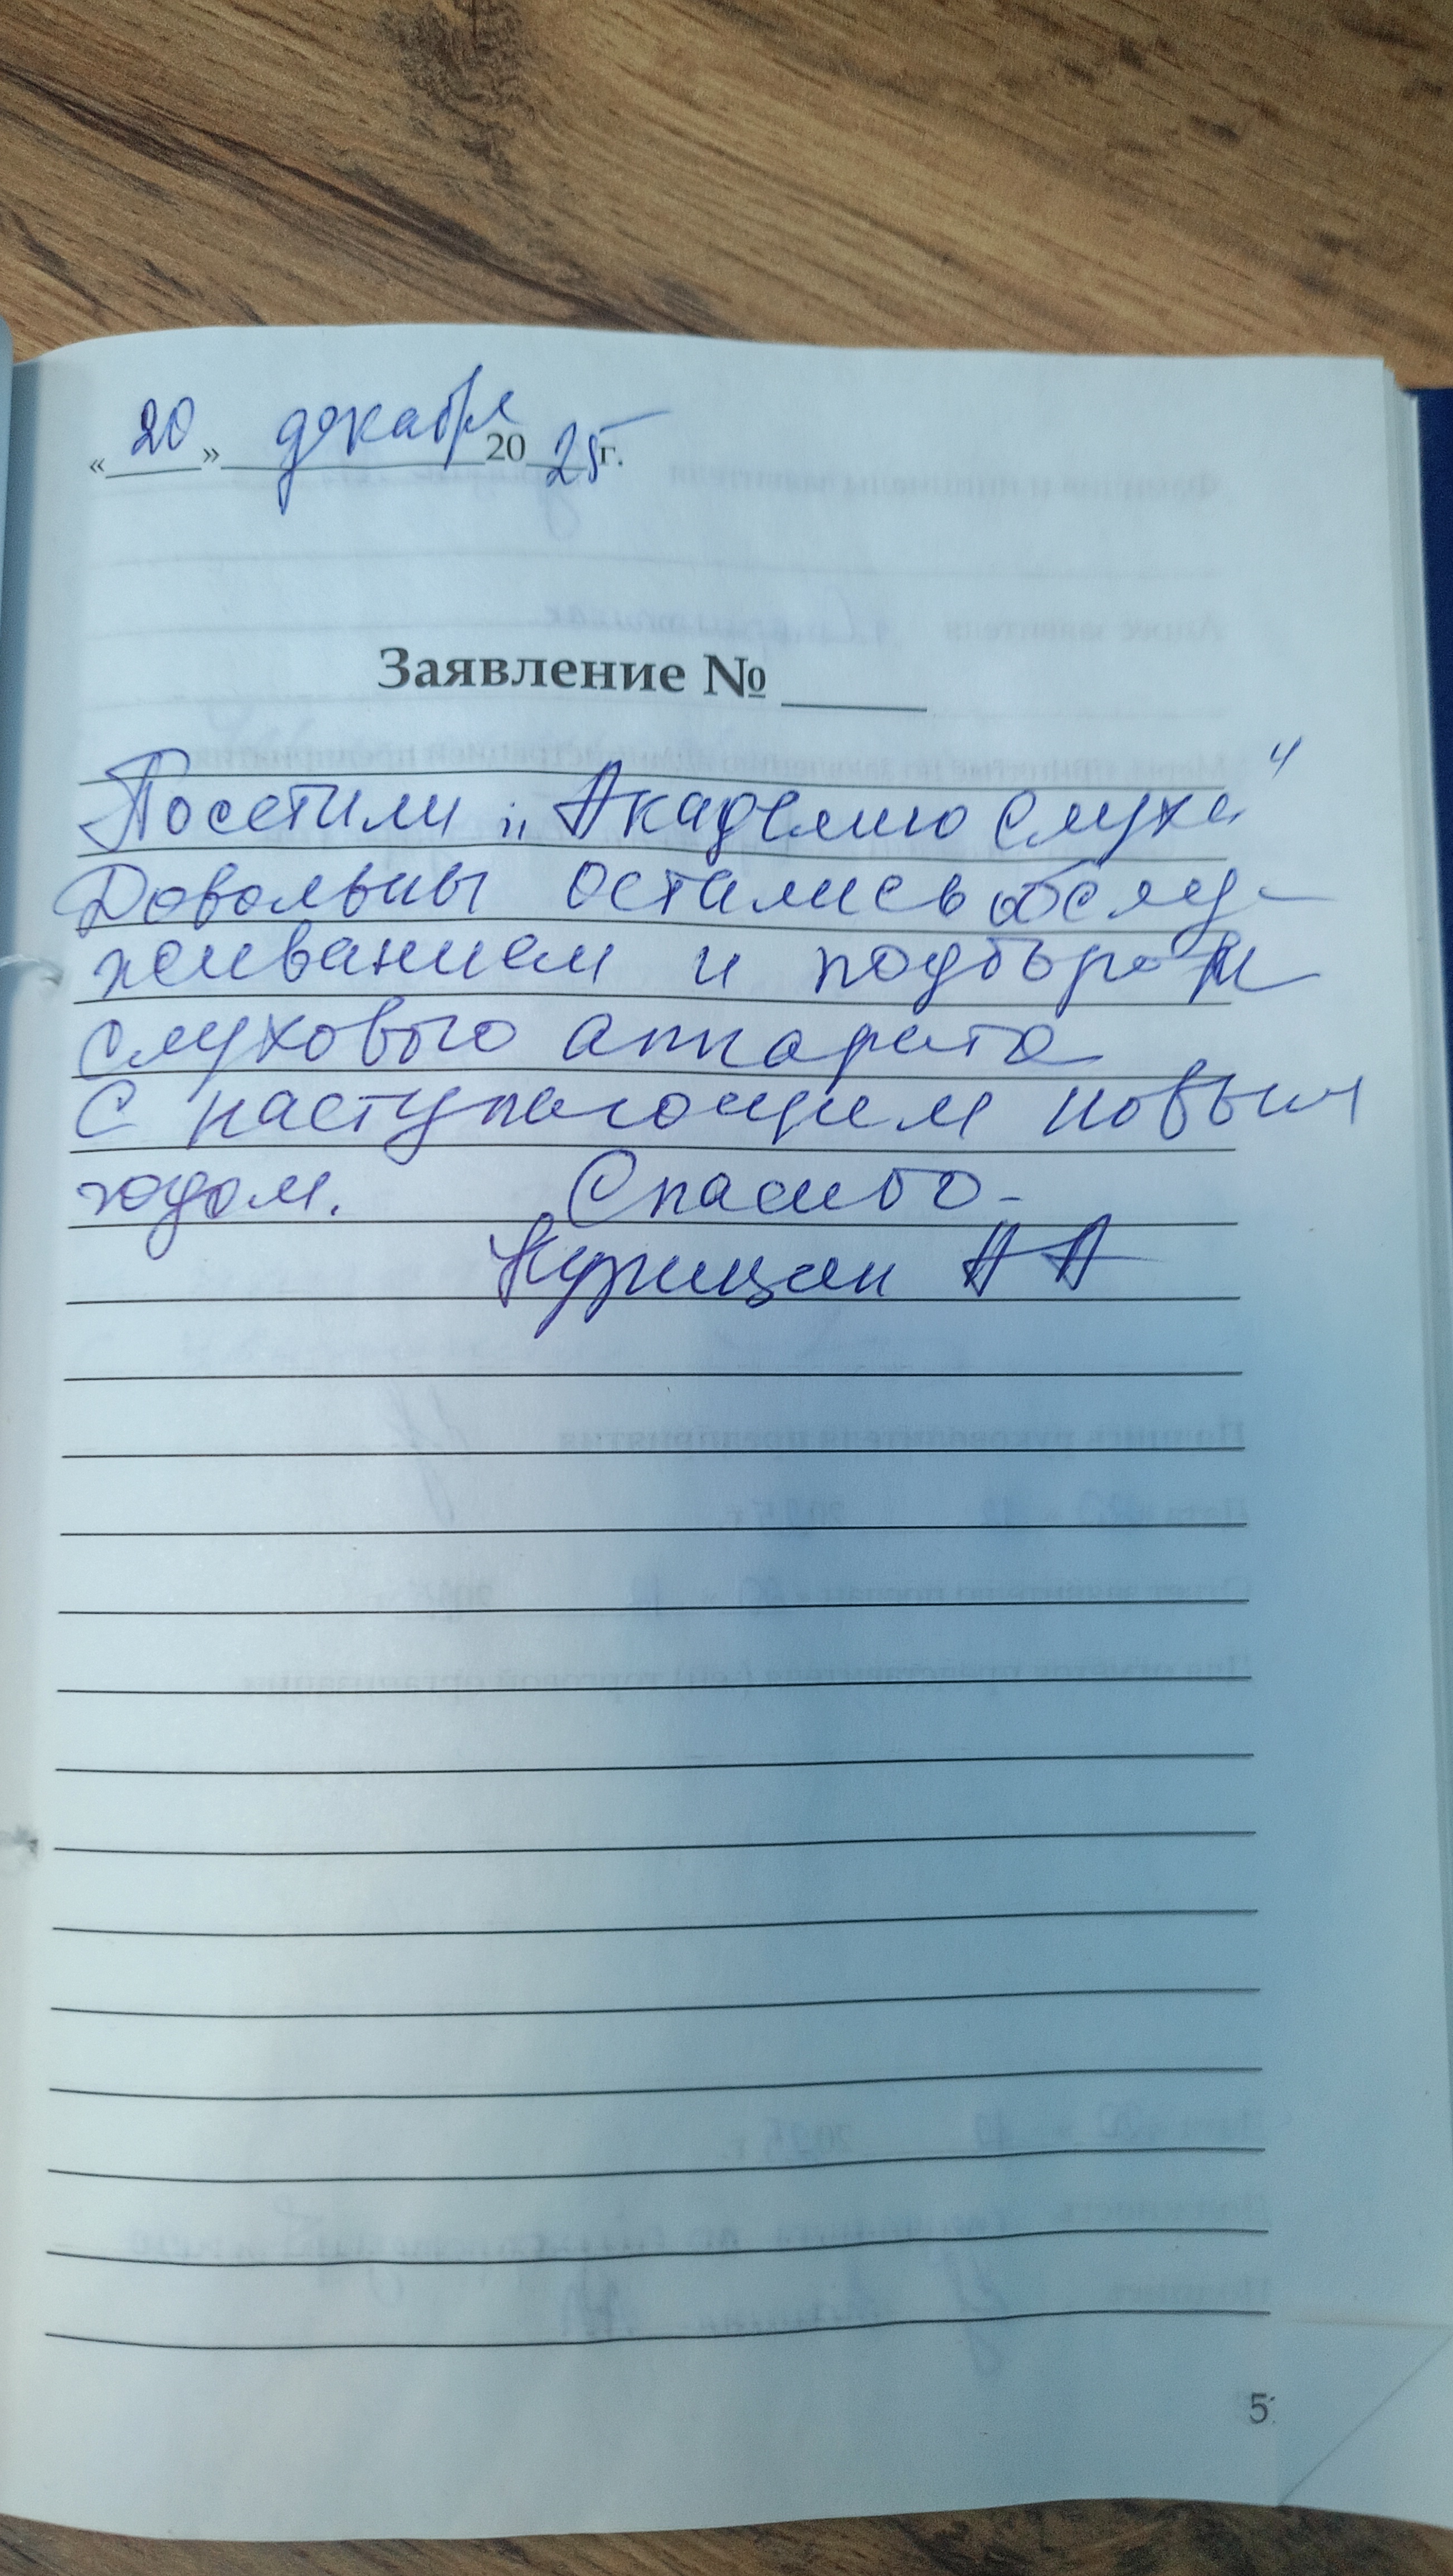 «20» декабря 2025 г.
Заявление №
Посетили "Академию слуха"
Довольны остались обслу-
живанием и подбором
слухового аппарата
С наступающим новым
годом. Спасибо-
А А
5